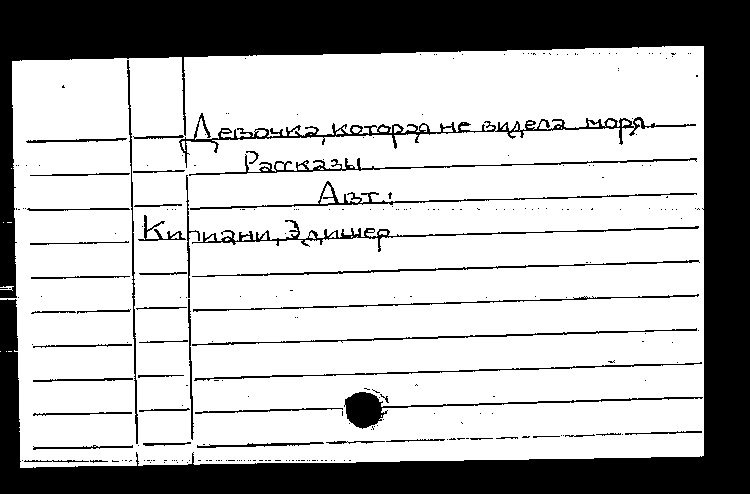 Девочка, которая не видела моря.
Рассказы.
Авт.:
Кипиани, Эдишер